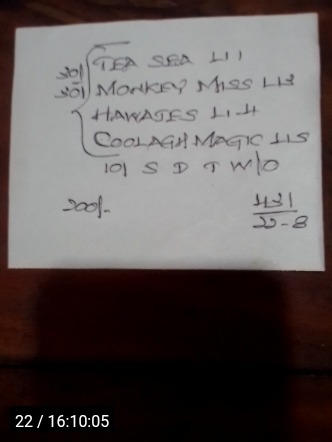 30/ TEA SEA 4.1
30/ MONKEY MISS 4.3
HAWAJES 4.4
COOLAGH MAGIC 4.5
10/ S D T W/O
200/-
431
22-8
22 / 16:10:05